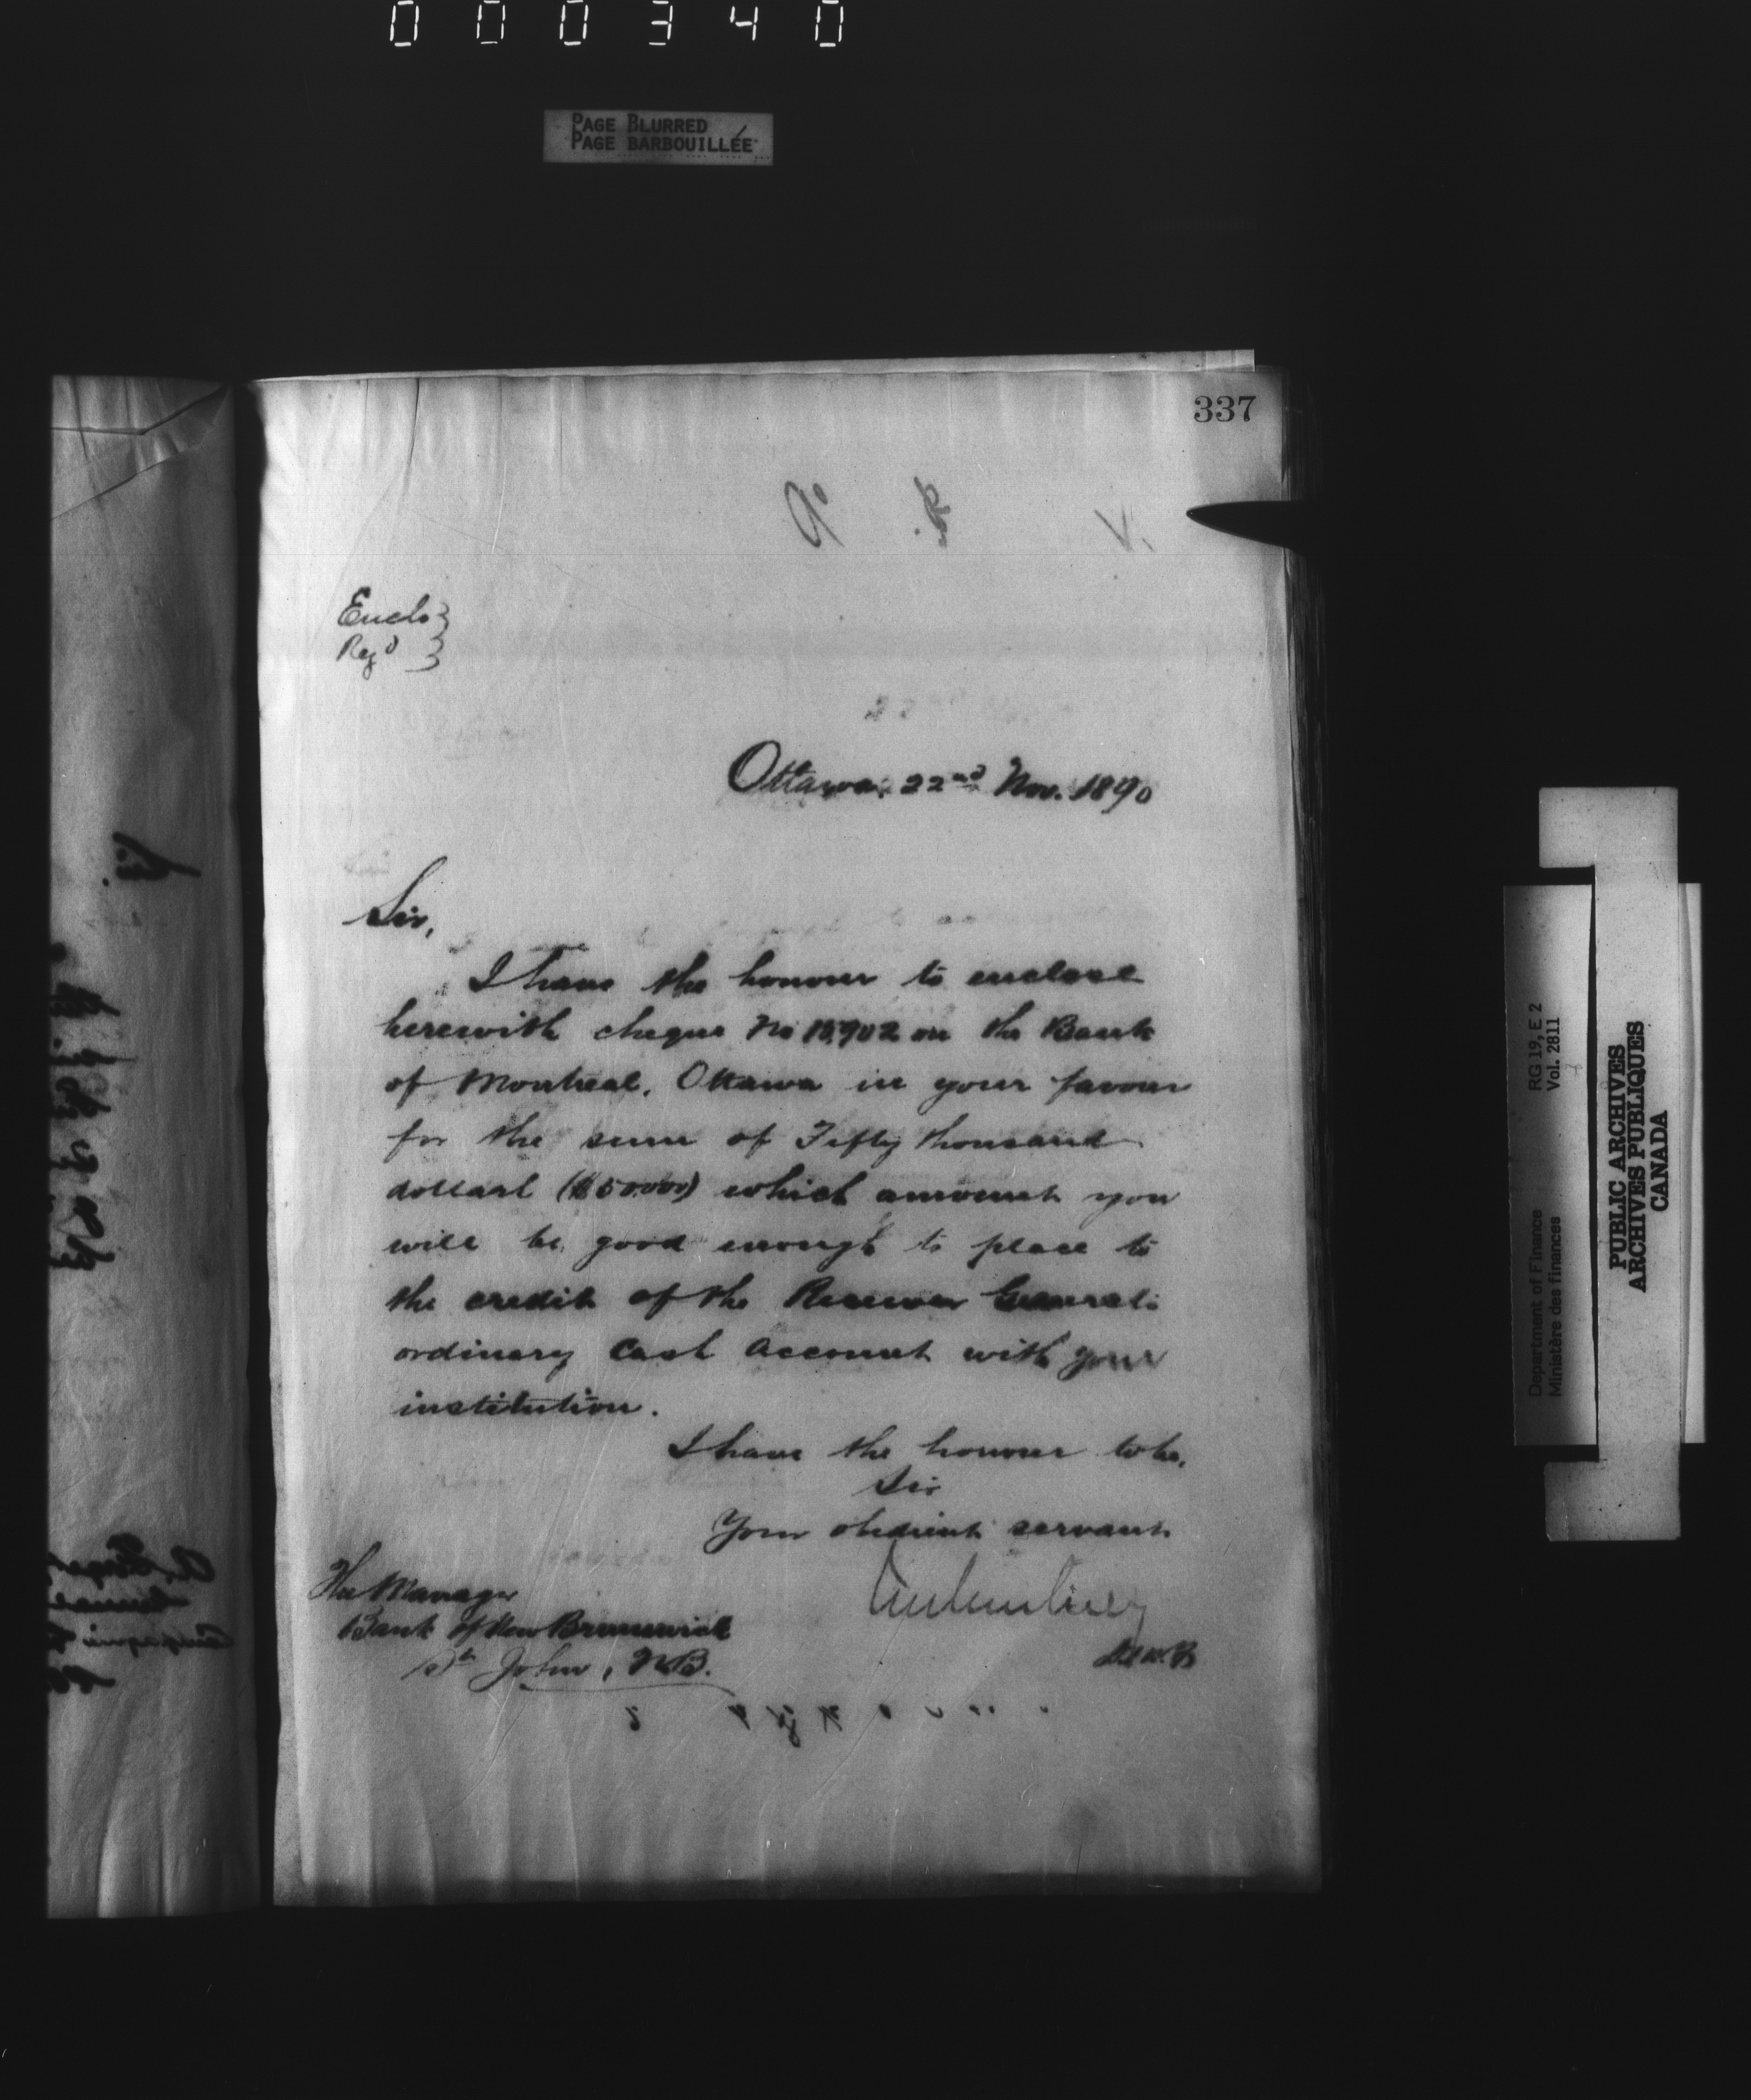 000340
PAGE BLURRED
PAGE BARBOUILLÉE
337
Enclo
Regd
Ottawa, 22nd Nov. 1890
Sir,
I have the honour to enclose
herewith cheque No on the Bank
of Montreal, Ottawa in your favour
for the sum of Fifty thousand
dollars ($50.000) which amount you
will be good enough to place to
the credit of the Receiver Generals
ordinary Cash Account with your
institution.
I have the honour to be,
Sir
Your obedient servant
The Manager
Bank of New Brunswick
St John, N.B.
RG 19, E 2
Vol. 2811
Department of Finance
Ministère des finances
PUBLIC ARCHIVES
ARCHIVES PUBLIQUES
CANADA